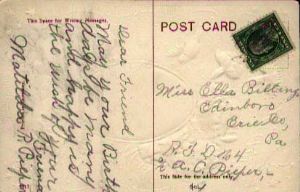 This Space for Writing Messages.
POST CARD
Dear Friend
May your Birth
days be many
and happy is
the wish of
Your
Friend
Matilda R.
Miss Ella Billings
Edinboro
Erie Co,
Pa
R.F.D. 64
This side for the address only.